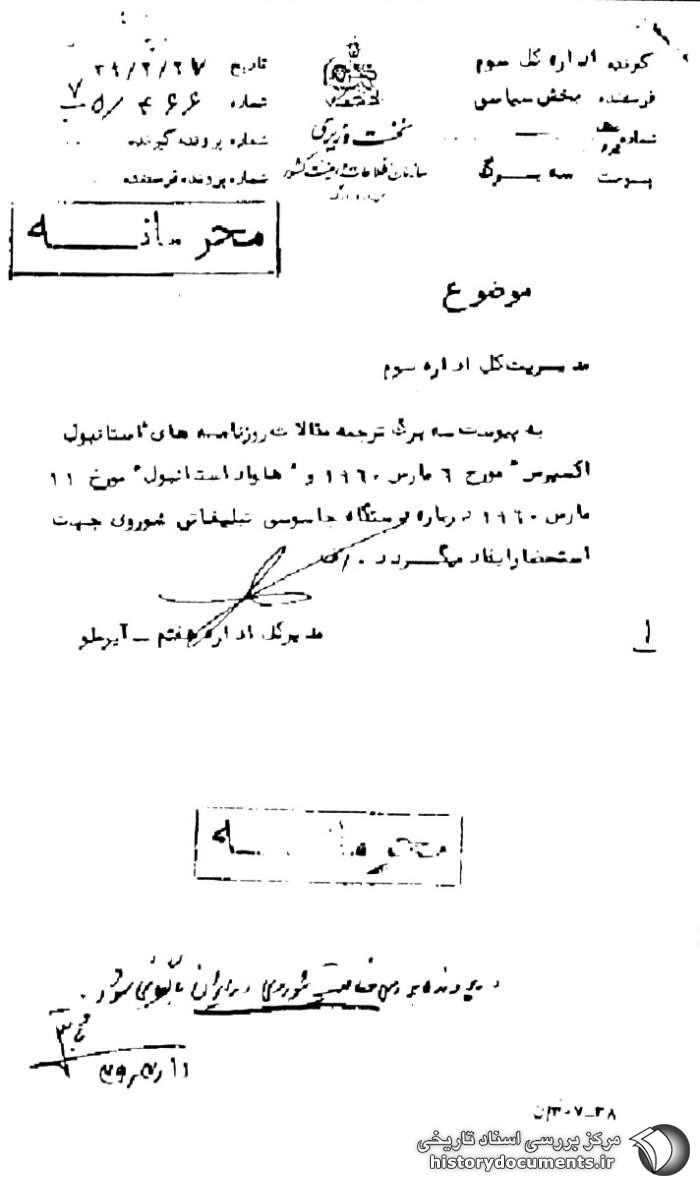 گیرنده اداره کل سوم
فرستنده بخش سیاسی
شماره
پیوست سه برگ
نخست وزیری
سازمان اطلاعات و امنیت کشور
تاریخ
شماره ۴۶۶
شماره پرونده گیرنده
شماره پرونده فرستنده
محرمانه
موضوع
مدیریت کل اداره سوم
به پیوست سه برگ ترجمه مقالات روزنامه های "استانبول
اکسپرس" مورخ ۶ مارس ۱۹۶۰ و "هاواد استانبول" مورخ ۱۱
مارس ۱۹۶۰ درباره دستگاه جاسوسی تبلیغاتی شوروی جهت
استحضار ایفاد میگردد.
مدیرکل اداره هفتم - آیرملو
۱
محرمانه
در پرونده بررسی فعالیت شوروی در ایران بایگانی شود.
مرکز بررسی اسناد تاریخی
historydocuments.ir